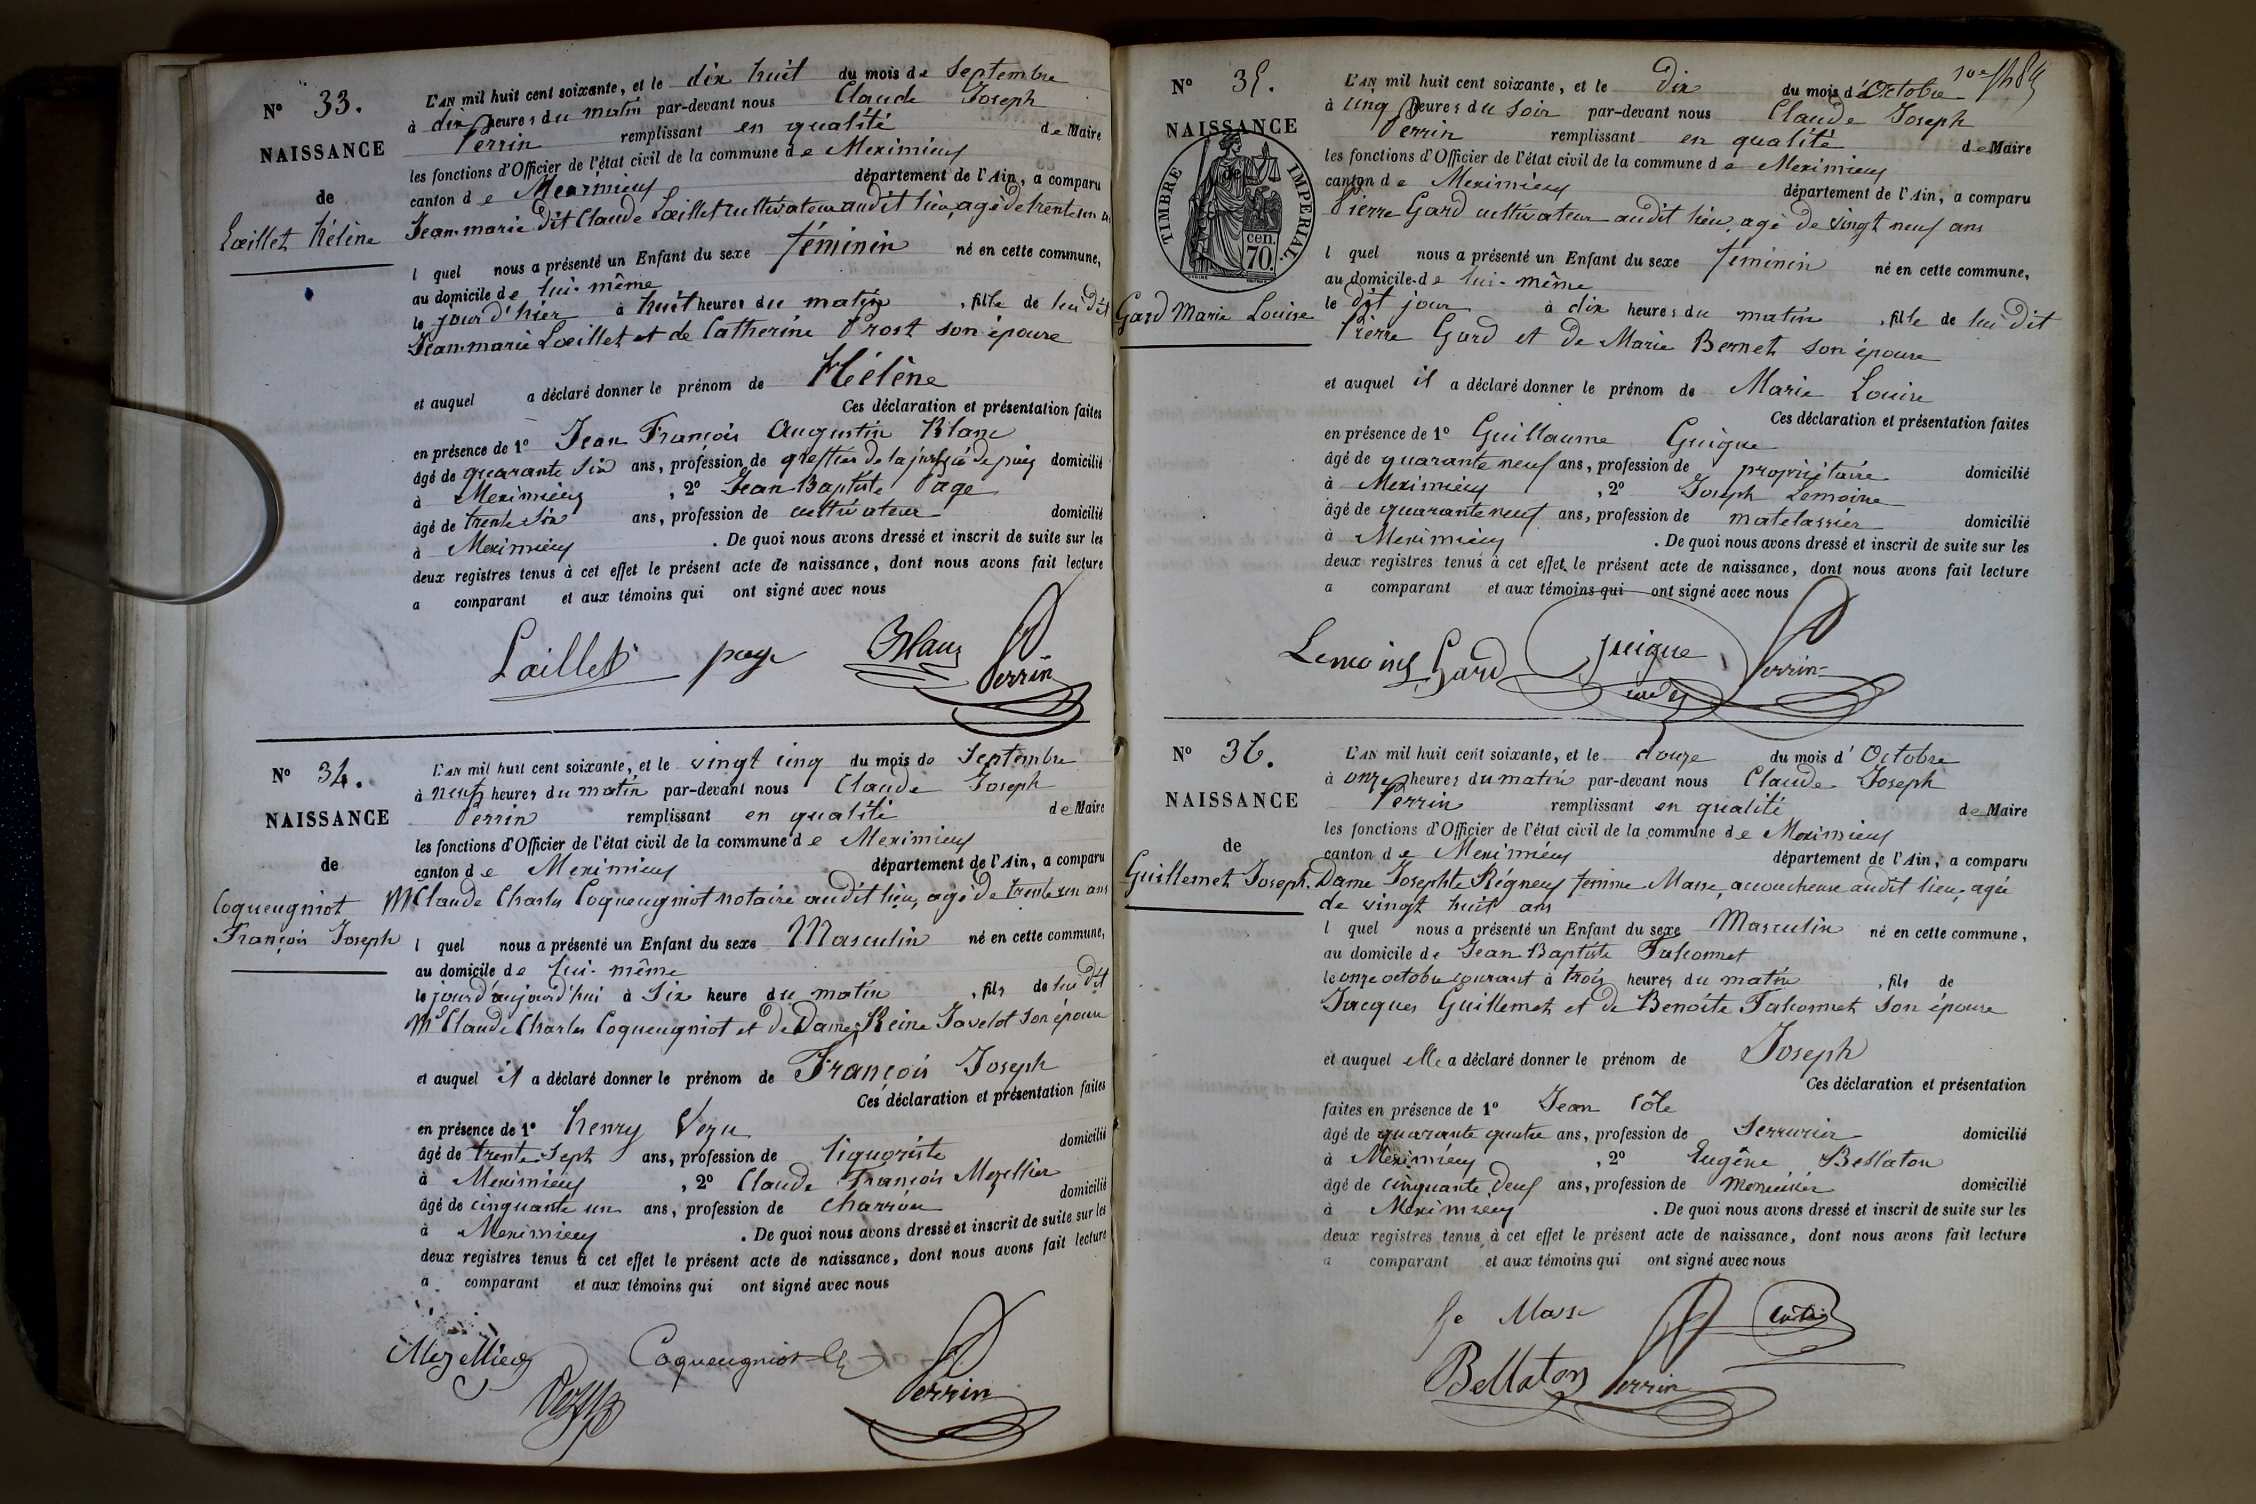 N° 33.
NAISSANCE
de
Lœillet Hélène
L'AN mil huit cent soixante, et le dix huit du mois de Septembre
à dix heures du matin par-devant nous Claude Joseph
Perrin remplissant en qualité de Maire
les fonctions d'Officier de l'état civil de la commune de Meximieux
canton de Meximieux département de l'Ain, a comparu
Jean-marie dit Claude Lœillet cultivateur audit lieu, agé de trente un
l quel nous a présenté un Enfant du sexe féminin né en cette commune,
au domicile de lui-même
le jour d'hier à huit heures du matin, fille de lui dit
Jean-marie Lœillet et de Catherine Prost son épouse
et auquel a déclaré donner le prénom de Hélène
Ces déclaration et présentation faites
en présence de 1° Jean François Augustin Blanc
âgé de quarante six ans, profession de greffier de la justice de paix domicilié
à Meximieux, 2° Jean Baptiste Page
âgé de trente six ans, profession de cultivateur domicilié
à Meximieux. De quoi nous avons dressé et inscrit de suite sur les
deux registres tenus à cet effet le présent acte de naissance, dont nous avons fait lecture
a comparant et aux témoins qui ont signé avec nous
Lœillet page Blanc Perrin
N° 34.
NAISSANCE
de
Coqueugniot
François Joseph
L'AN mil huit cent soixante, et le vingt cinq du mois de Septembre
à neuf heures du matin par-devant nous Claude Joseph
Perrin remplissant en qualité de Maire
les fonctions d'Officier de l'état civil de la commune de Meximieux
canton de Meximieux département de l'Ain, a comparu
Me Claude Charles Coqueugniot notaire audit lieu, agé de trente un ans
l quel nous a présenté un Enfant du sexe Masculin né en cette commune,
au domicile de lui-même
le jourd'aujourd'hui à six heure du matin, fils de lui dit
Me Claude Charles Coqueugniot et de Dame Reine Javelot son épouse
et auquel il a déclaré donner le prénom de François Joseph
Ces déclaration et présentation faites
en présence de 1° henry Vezu
âgé de trente sept ans, profession de liquoriste domicilié
à Meximieux, 2° Claude François Mezellier
âgé de cinquante un ans, profession de charron domicilié
à Meximieux. De quoi nous avons dressé et inscrit de suite sur les
deux registres tenus à cet effet le présent acte de naissance, dont nous avons fait lecture
a comparant et aux témoins qui ont signé avec nous
Mezellier Coqueugniot Perrin
Vezu
N° 35.
NAISSANCE
de
TIMBRE IMPERIAL.
cen.
70.
Gard Marie Louise
L'AN mil huit cent soixante, et le dix du mois d'Octobre
à cinq heures du soir par-devant nous Claude Joseph
Perrin remplissant en qualité de Maire
les fonctions d'Officier de l'état civil de la commune de Meximieux
canton de Meximieux département de l'Ain, a comparu
Pierre Gard cultivateur audit lieu, agé de vingt neuf ans
l quel nous a présenté un Enfant du sexe féminin né en cette commune,
au domicile de lui-même
le dit jour à dix heures du matin, fille de lui dit
Pierre Gard et de Marie Bernet son épouse
et auquel il a déclaré donner le prénom de Marie Louise
Ces déclaration et présentation faites
en présence de 1° Guillaume Guigue
âgé de quarante neuf ans, profession de propriétaire domicilié
à Meximieux, 2° Joseph Lemoine
âgé de quarante neuf ans, profession de matelassier domicilié
à Meximieux. De quoi nous avons dressé et inscrit de suite sur les
deux registres tenus à cet effet le présent acte de naissance, dont nous avons fait lecture
a comparant et aux témoins qui ont signé avec nous
Lemoine Gard guigue Perrin
N° 36.
NAISSANCE
de
Guillemet Joseph.
L'AN mil huit cent soixante, et le douze du mois d'Octobre
à onze heures du matin par-devant nous Claude Joseph
Perrin remplissant en qualité de Maire
les fonctions d'Officier de l'état civil de la commune de Meximieux
canton de Meximieux département de l'Ain, a comparu
Dame Josephte Régneux femme Masse, accoucheuse audit lieu, agée
de vingt huit ans
l quel nous a présenté un Enfant du sexe Masculin né en cette commune,
au domicile de Jean Baptiste Falconnet
le onze octobre courant à trois heures du matin, fils de
Jacques Guillemet et de Benoite Falconnet son épouse
et auquel elle a déclaré donner le prénom de Joseph
Ces déclaration et présentation
faites en présence de 1° Jean Côte
âgé de quarante quatre ans, profession de Serrurier domicilié
à Meximieux, 2° Eugêne Bellaton
âgé de cinquante deux ans, profession de menuisier domicilié
à Meximieux. De quoi nous avons dressé et inscrit de suite sur les
deux registres tenus à cet effet le présent acte de naissance, dont nous avons fait lecture
a comparant et aux témoins qui ont signé avec nous
fe Masse
Bellaton Perrin